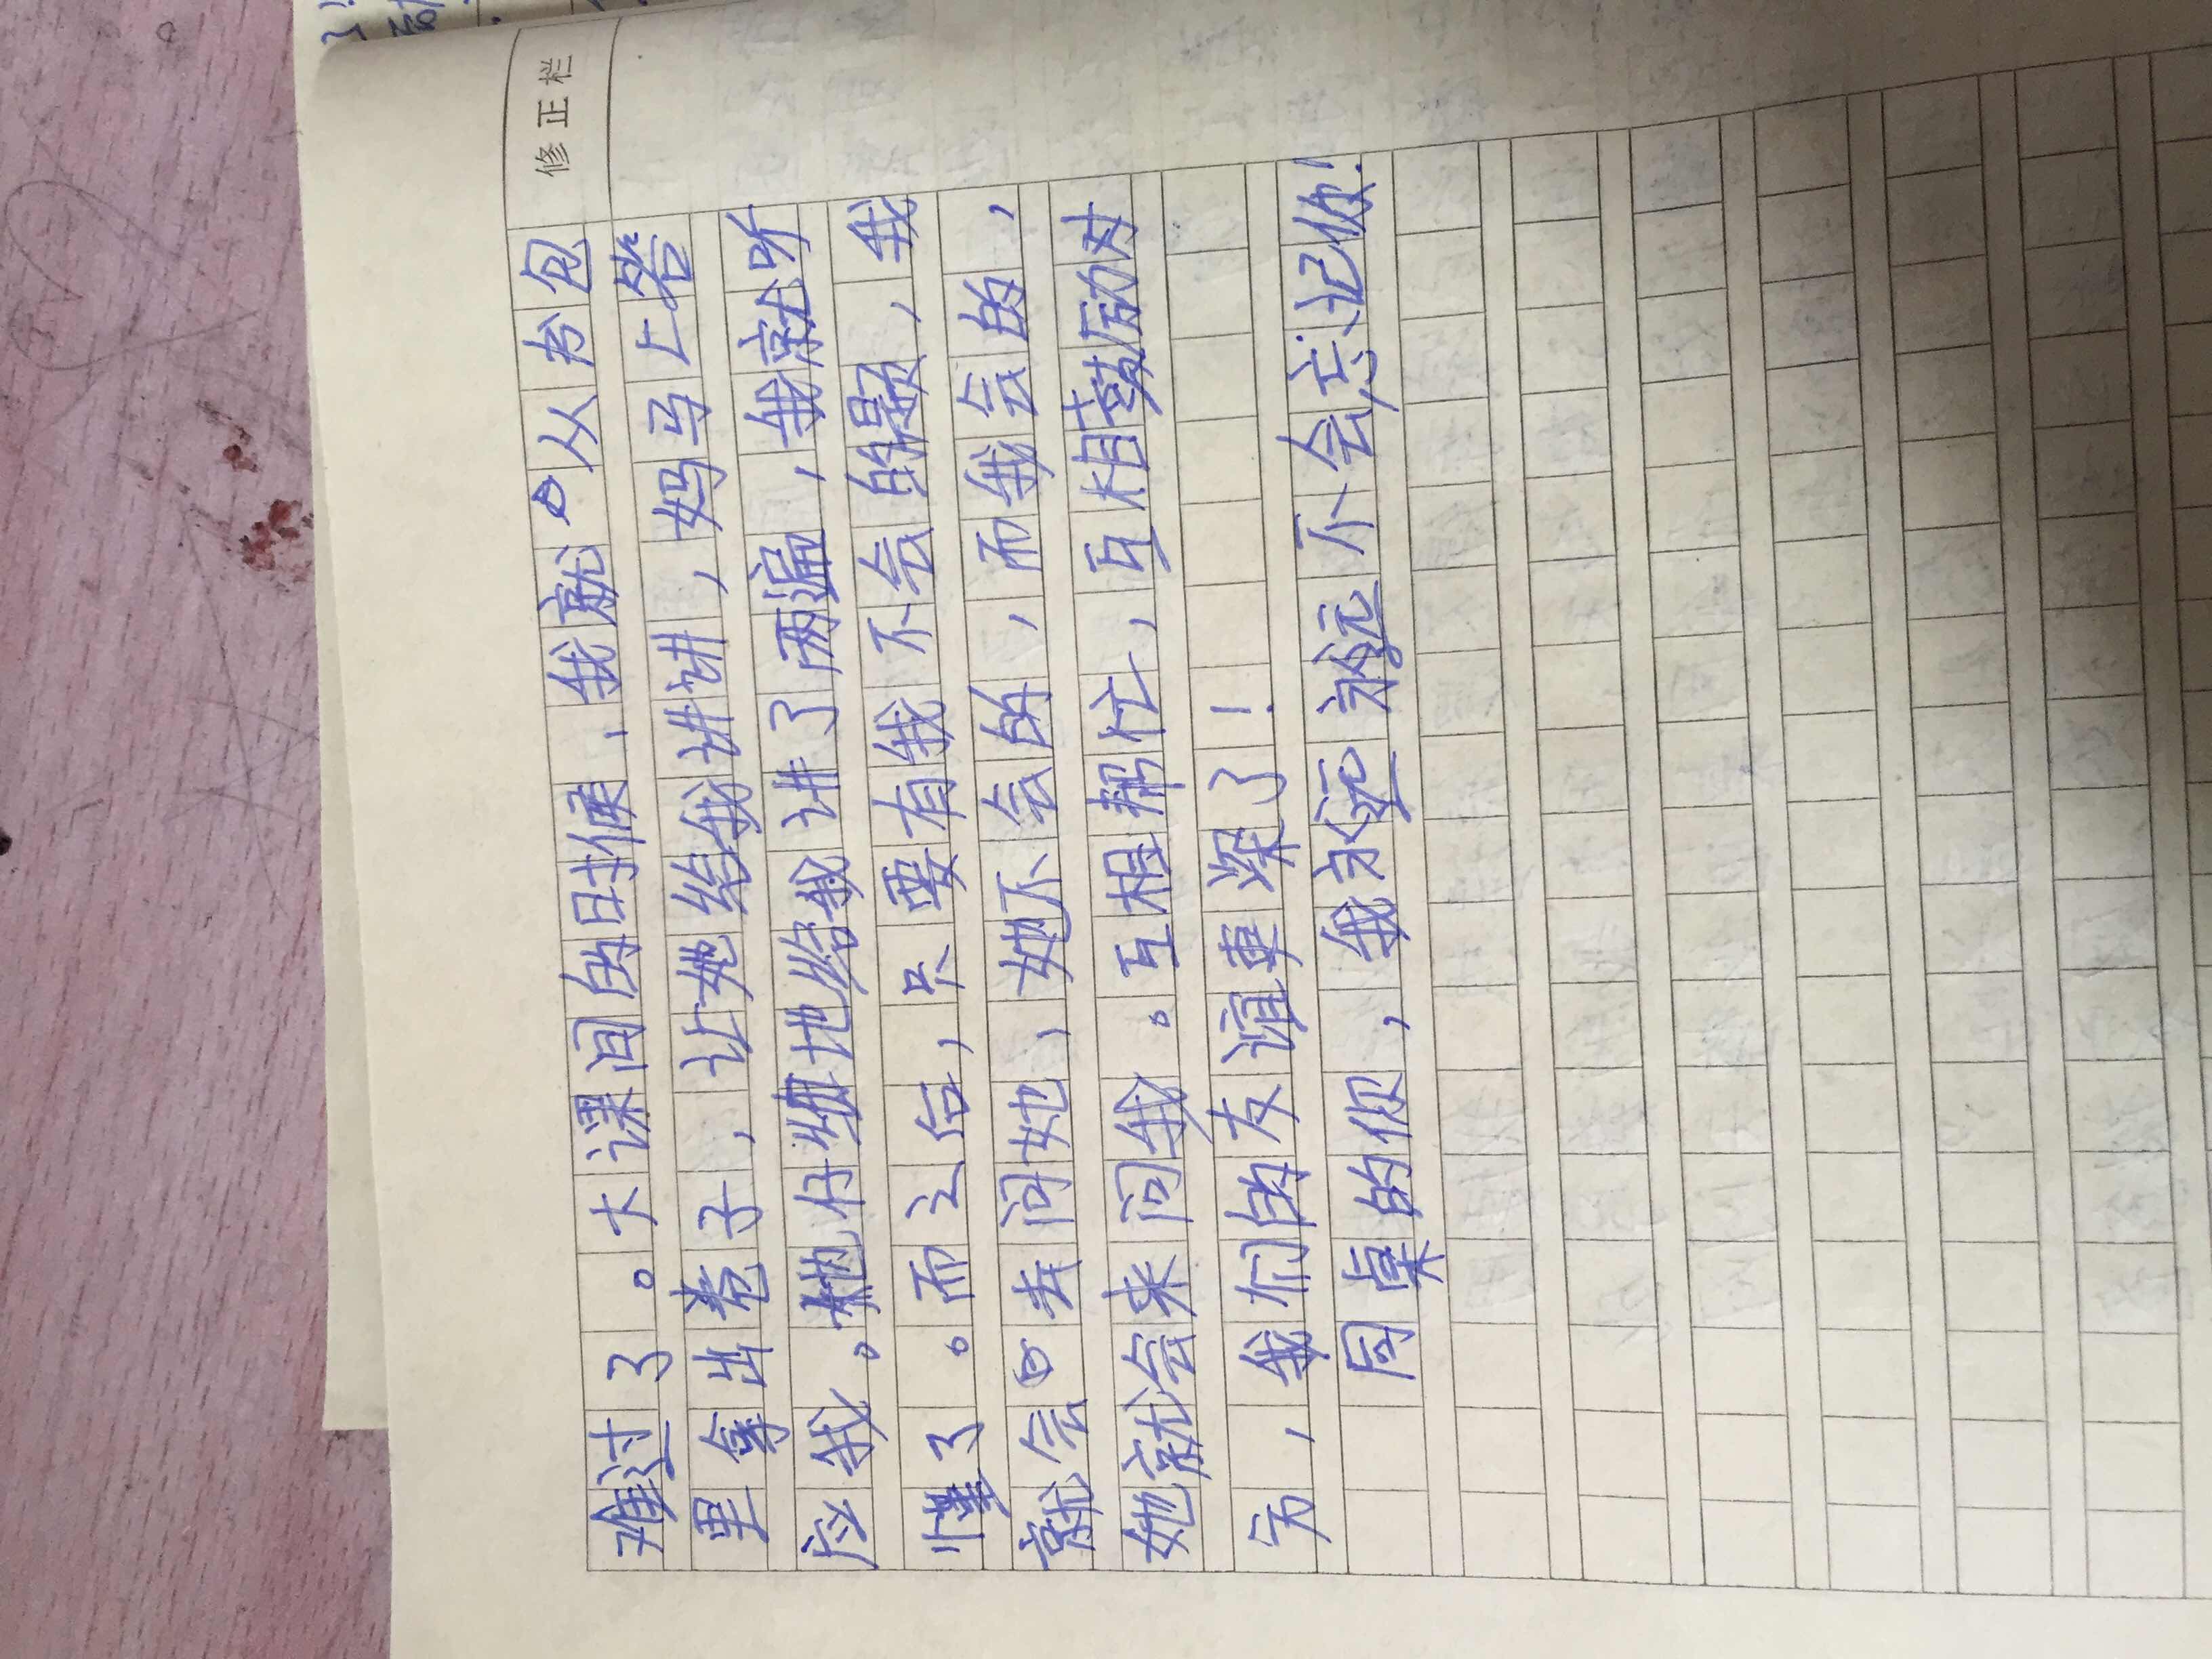 修正栏
难过了。大课间的时候，我就从书包
里拿出卷子，让她给我讲讲，妈马上答
应我。她仔细地给我讲了两遍，我就听
懂了。而之后，只要有我不会的题，我
就会去问她，她不会的，而我会的，
她就会来问我。互相帮忙，互相鼓励对
方，我们的友谊更深了！
同桌的你，我永远永远不会忘记你！